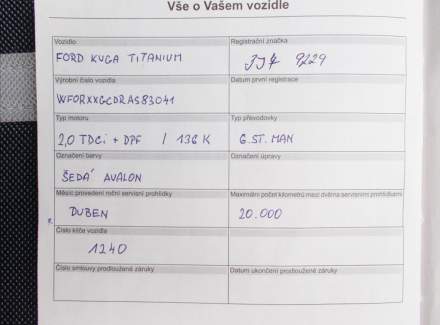 Vše o Vašem vozidle
Vozidlo
Registrační značka
FORD KUGA TITANIUM
3J4 9229
Výrobní číslo vozidla
Datum první registrace
WF0RXXGCDRAS83041
Typ motoru
Typ převodovky
2,0 TDCi + DPF / 136 K
6.ST. MAN
Označení barvy
Označení úpravy
ŠEDÁ AVALON
Měsíc provedení roční servisní prohlídky
Maximální počet kilometrů mezi dvěma servisními prohlídkami
DUBEN
20.000
Číslo klíče vozidla
1240
Číslo smlouvy prodloužené záruky
Datum ukončení prodloužené záruky